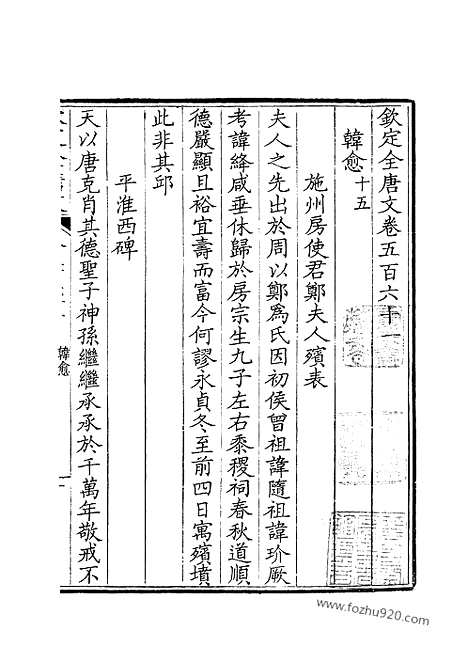 欽定全唐文卷五百六十一
韓愈十五
施州房使君鄭夫人殯表
夫人之先出於周以鄭為氏因初侯曾祖諱隨祖諱玠厥
考諱絳咸垂休歸於房宗生九子左右黍稷祠春秋道順
德嚴顯且裕宜壽而富今何謬永貞冬至前四日寓殯墳
此非其邱
平淮西碑
天以唐克肖其德聖子神孫繼繼承承於千萬年敬戒不
韓愈
一
www.fozhu920.com